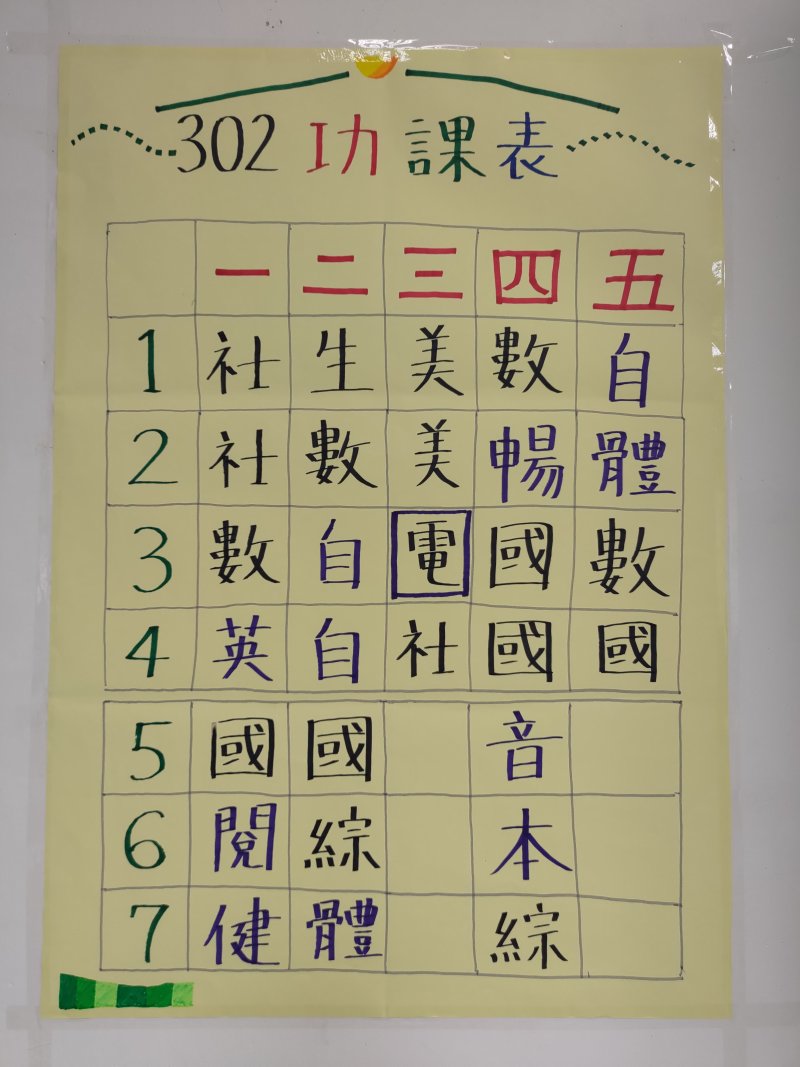 302 功課表
一 二 三 四 五
1 社 生 美 數 自
2 社 數 美 暢 體
3 數 自 電 國 數
4 英 自 社 國 國
5 國 國 音
6 閱 綜 本
7 健 體 綜